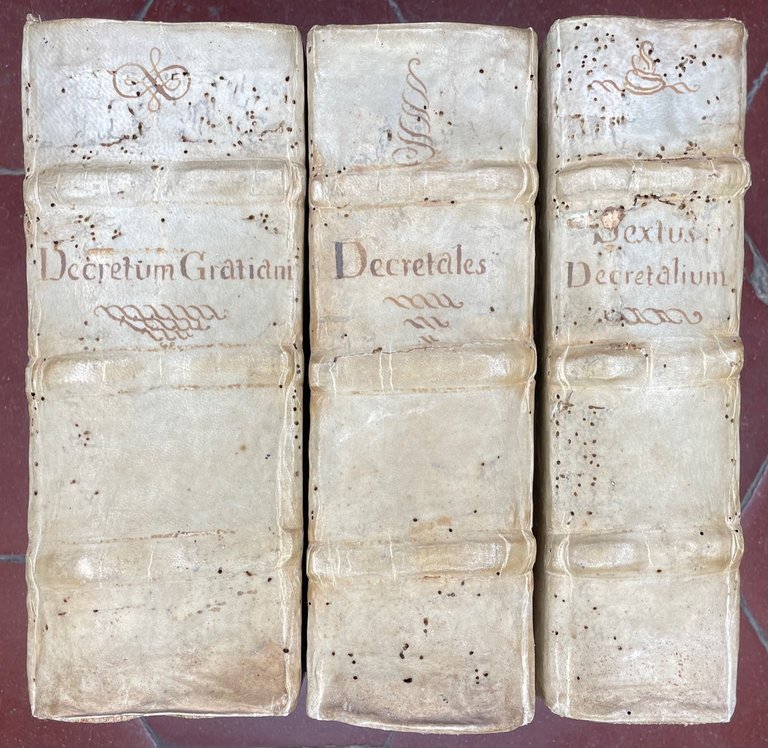 Decretum Gratiani
Decretales
Sextus
Decretalium